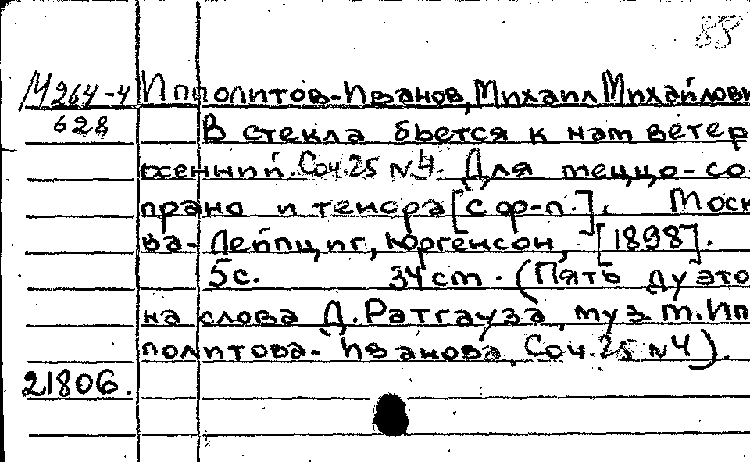 88
М264-4 Ипполитов-Иванов, Михаил Михайлови
628 В стекла бьется к нам ветер
осенний. Соч. 25 № 4. Для меццо-со
прано и тенора [с ф-п.]. Моск
ва-Лейпциг, Юргенсон, [1898].
5с. 34 cm. (Пять дуэто
на слова Д. Ратгауза, муз. М. Ип
политова-Иванова, Соч. 25 № 4).
21806.